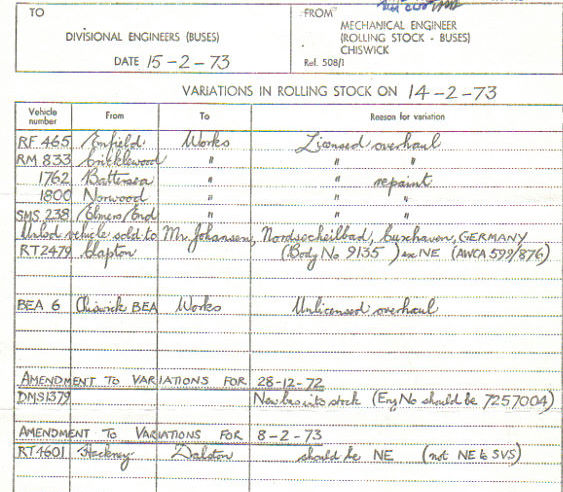 TO
FROM
DIVISIONAL ENGINEERS (BUSES)
MECHANICAL ENGINEER
(ROLLING STOCK - BUSES)
CHISWICK
DATE 15-2-73
Ref. 508/1
VARIATIONS IN ROLLING STOCK ON 14-2-73
Vehicle number From To Reason for variation
RF 465 Enfield Works Licensed overhaul
RM 833 Cricklewood " " "
1762 Battersea " " repaint
1800 Norwood " " "
SMS 238 Elmers End " " "
Unlsd vehicle sold to Mr. Johansen, Nordseeheilbad, Cuxhaven, GERMANY
RT2479 Clapton (Body No 9135) ex NE (AWCA 599/876)
BEA 6 Chiswick BEA Works Unlicensed overhaul
AMENDMENT TO VARIATIONS FOR 28-12-72
DMS1379 New bus into stock (Eng No should be 7257004)
AMENDMENT TO VARIATIONS FOR 8-2-73
RT4601 Hackney Dalston should be NE (not NE to SVS)